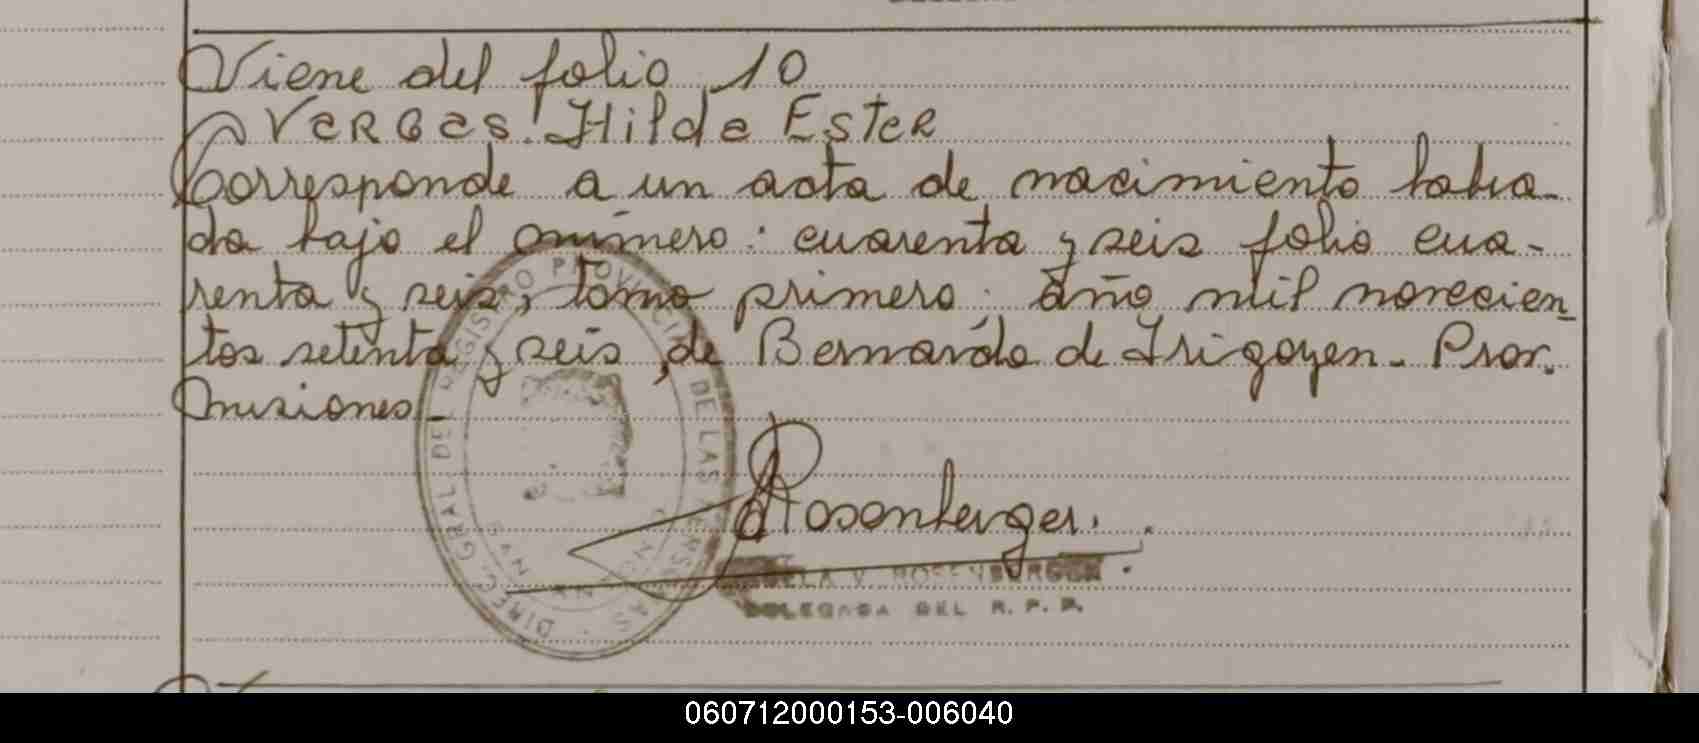 Viene del folio 10
Vargas. Hilda Ester
Corresponde a un acta de nacimiento labra-
da bajo el número: cuarenta y seis folio cua-
renta y seis, tomo primero. año mil novecien
tos setenta y seis, de Bernardo de Irigoyen - Prov.
Misiones -
Rosenberger.
V. ROSENBURGER
DELEGADA DEL R. P. P.
DIREC. GRAL. DEL REGISTRO PROVINCIAL DE LAS PERSONAS
060712000153-006040